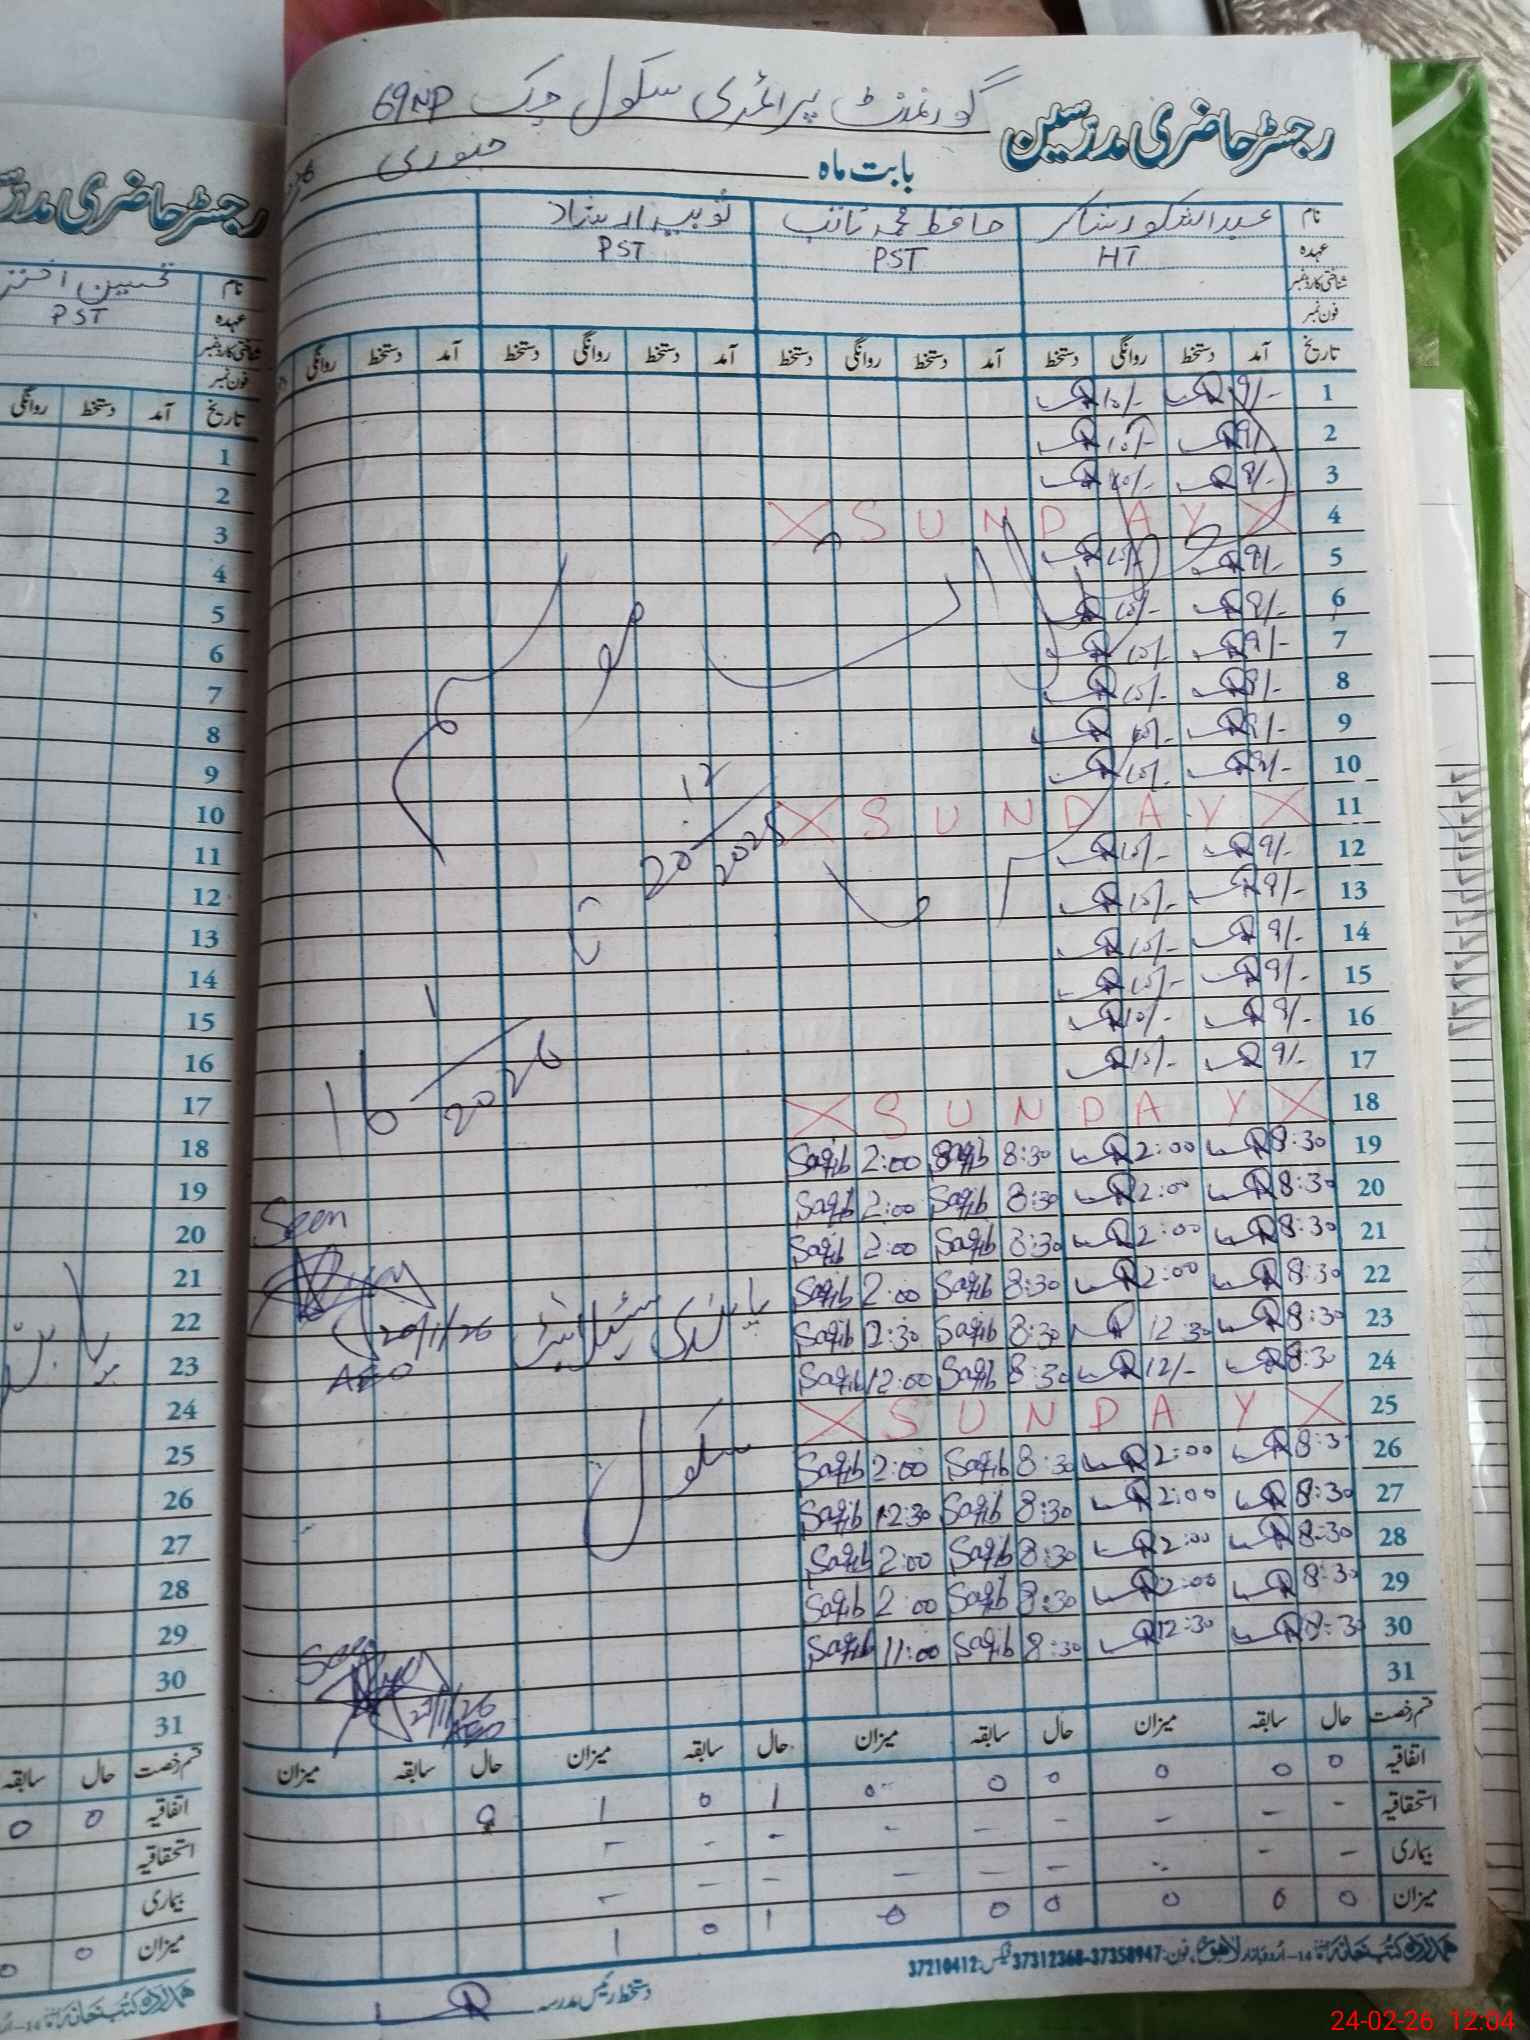 گورنمنٹ پرائمری سکول چک 69NP
رجسٹر حاضری مدرسین
بابت ماہ جنوری
نام عبدالشکور شاکر حافظ محمد ثاقب ثوبیہ ارشاد
عہدہ HT PST PST
شناختی کارڈ نمبر
فون نمبر
تاریخ آمد دستخط روانگی دستخط آمد دستخط روانگی دستخط آمد دستخط روانگی دستخط آمد دستخط روانگی
1 9/-
2 9/-
3 9/-
4 X S U N D A Y X
5 9/-
6 9/-
7 9/-
8 9/-
9 9/-
10 9/-
11 X S U N D A Y X
12 9/-
13 9/-
14 9/-
15 9/-
16 9/-
17 9/-
18 X S U N D A Y X
19 8:30 2:00 8:30 Saqib 2:00 Saqib
20 8:30 2:00 8:30 Saqib 2:00 Saqib
21 8:30 2:00 8:30 Saqib 2:00 Saqib
22 8:30 2:00 8:30 Saqib 2:00 Saqib
23 8:30 12:30 8:30 Saqib 12:30 Saqib
24 8:30 12/- 8:30 Saqib 12:00 Saqib
25 X S U N D A Y X
26 8:30 2:00 8:30 Saqib 2:00 Saqib
27 8:30 2:00 8:30 Saqib 12:30 Saqib
28 8:30 2:00 8:30 Saqib 2:00 Saqib
29 8:30 2:00 8:30 Saqib 2:00 Saqib
30 8:30 12:30 8:30 Saqib 11:00 Saqib
31
20/12/2025
16/1/2026
Seen
20/1/26
AEO
سکول
Seen
AEO
قسم رخصت حال سابقہ میزان حال سابقہ میزان حال سابقہ میزان حال سابقہ میزان
اتفاقیہ 0 0 0 0 0 0 1 0 1 0
استحقاقیہ - - - - - - - - -
بیماری - - - - - - - - -
میزان 0 0 0 0 0 0 1 0 1
ہمدرد کتب خانہ اردو بازار لاہور، فون: 37358947-37312368 فیکس: 37210412
دستخط رئیس مدرسہ
رجسٹر حاضری مدرسین
نام تحسین اختر
عہدہ PST
شناختی کارڈ نمبر
فون نمبر
تاریخ آمد دستخط روانگی
1
2
3
4
5
6
7
8
9
10
11
12
13
14
15
16
17
18
19
20
21
22
23
24
25
26
27
28
29
30
31
قسم رخصت حال سابقہ
اتفاقیہ 0 0
استحقاقیہ
بیماری
میزان 0 0
ہمدرد کتب خانہ
24-02-26 12:04